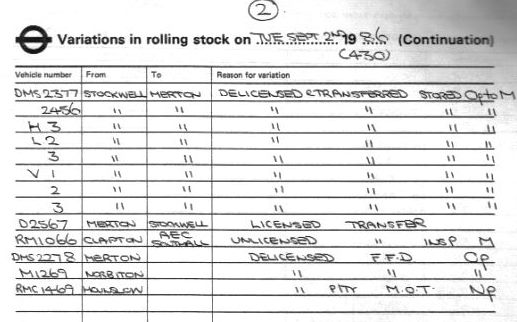 2
Variations in rolling stock on TUE SEPT 2ND 1986 (Continuation)
(430)
Vehicle number From To Reason for variation
DMS 2377 STOCKWELL MERTON DELICENSED & TRANSFERRED STORED Op to M
2456 " " " " " "
H 3 " " " " " "
L 2 " " " " " "
3 " " " " " "
V 1 " " " " " "
2 " " " " " "
3 " " " " " "
D2567 MERTON STOCKWELL LICENSED TRANSFER
RM1066 CLAPTON AEC SOUTHALL UNLICENSED " INSP M
DMS 2278 MERTON DELICENSED F.F.D Op
M1269 NORBITON " " "
RMC 1469 HOUNSLOW " M.O.T. Np